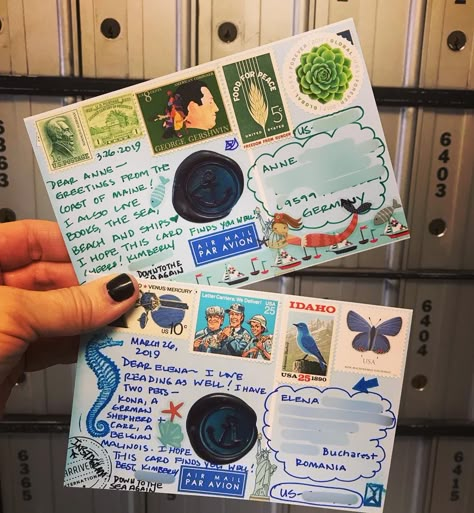 U.S. POSTAGE
8¢
AMERICAN
GEORGE GERSHWIN
FOOD FOR PEACE
5¢
UNITED STATES
FREEDOM FROM HUNGER
GLOBAL
FOREVER
3.26.2019
DEAR ANNE -
GREETINGS FROM THE
COAST OF MAINE!
I ALSO LOVE
BOOKS, THE SEA,
BEACH AND SHIPS
I HOPE THIS CARD FINDS YOU WELL.
CHEERS! KIMBERLY
DOWN TO THE
SEA AGAIN
AIR MAIL
PAR AVION
US-
ANNE
GERMANY
+ VENUS-MERCURY
US 10c
Letter Carriers: We Deliver!
USA
25
IDAHO
USA 25 1890
USA
MARCH 26,
2019
DEAR ELENA - I LOVE
READING AS WELL! I HAVE
TWO PETS -
KONA, A
GERMAN
SHEPHERD +
CARR, A
BELGIAN
MALINOIS. I HOPE
THIS CARD FINDS YOU WELL!
BEST, KIMBERLY
DOWN TO THE
SEA AGAIN
AIR MAIL
PAR AVION
ELENA
Bucharest
ROMANIA
US-
6363
6364
6365
6403
6404
6415